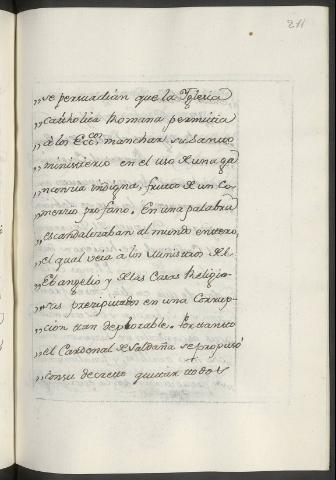 211
„se persuadian que la Iglesia
„Catholica Romana permitia
„a los Ecc.cos manchar su Santo
„ministerio en el uso de una ga
„nancia indigna, fruto de un Co
„mercio profano. En una palabra
„escandalizaban al mundo entero,
„el qual veia a los Ministros del
„Evangelio y de las Casas Religio-
„sas precipitados en una Corrup-
„cion tan deplorable. Por tanto
„el Cardenal de Saldaña se propuso
„con su decreto quitar todos